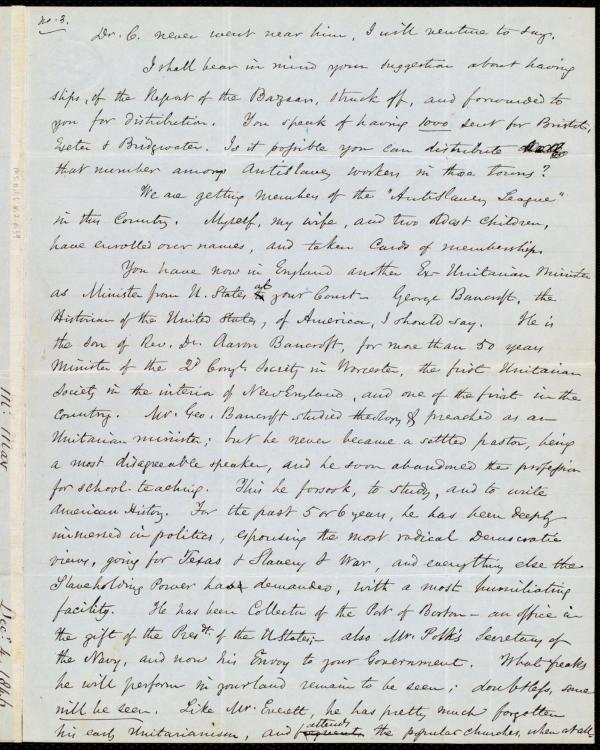 no. 3.
Dr. C. never went near him, I will venture to say.
I shall bear in mind your suggestion about having
slips, of the Report of the Bazaar, struck off, and forwarded to
you for distribution. You speak of having 1000 sent for Bristol,
Exeter & Bridgwater. Is it possible you can distribute
that number among Antislavery workers in those towns?
We are getting members of the "Antislavery League"
in this Country. Myself, my wife, and two oldest children,
have enrolled our names, and taken Cards of membership.
You have now in England another Ex-Unitarian Minister
as Minister from U. States at your Court - George Bancroft, the
Historian of the United States, of America, I should say. He is
the son of Rev. Dr. Aaron Bancroft, for more than 50 years
Minister of the 2d Congl. Society in Worcester, the first Unitarian
Society in the interior of New England, and one of the first in the
Country. Mr. Geo. Bancroft studied theology & preached as an
Unitarian minister; but he never became a settled pastor, being
a most disagreeable speaker, and he soon abandoned the profession
for school-teaching. This he forsook, to study, and to write
American History. For the past 5 or 6 years, he has been deeply
immersed in politics, espousing the most radical Democratic
views, going for Texas & Slavery & War, and everything else the
Slaveholding Power has demanded, with a most humiliating
facility. He has been Collector of the Port of Boston - an office in
the gift of the Presdt. of the U States; - also Mr. Polk's Secretary of
the Navy, and now his Envoy to your Government. What freaks
he will perform in your land remain to be seen; doubtless, some
will be seen. Like Mr. Everett, he has pretty much forgotten
his early Unitarianism, and attends frequents the popular churches, when at all -
M. May
Dec. 4. 1846